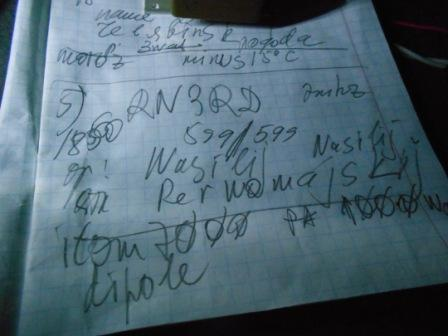 name
Telabinsk
moroz 3wat pogoda
minus 15° C
5) RN3RD 7mhz
1850 599/599
op! Wasilij Nasilij
qth Perwomajskij
icom 7000 PA 1000 W
dipole